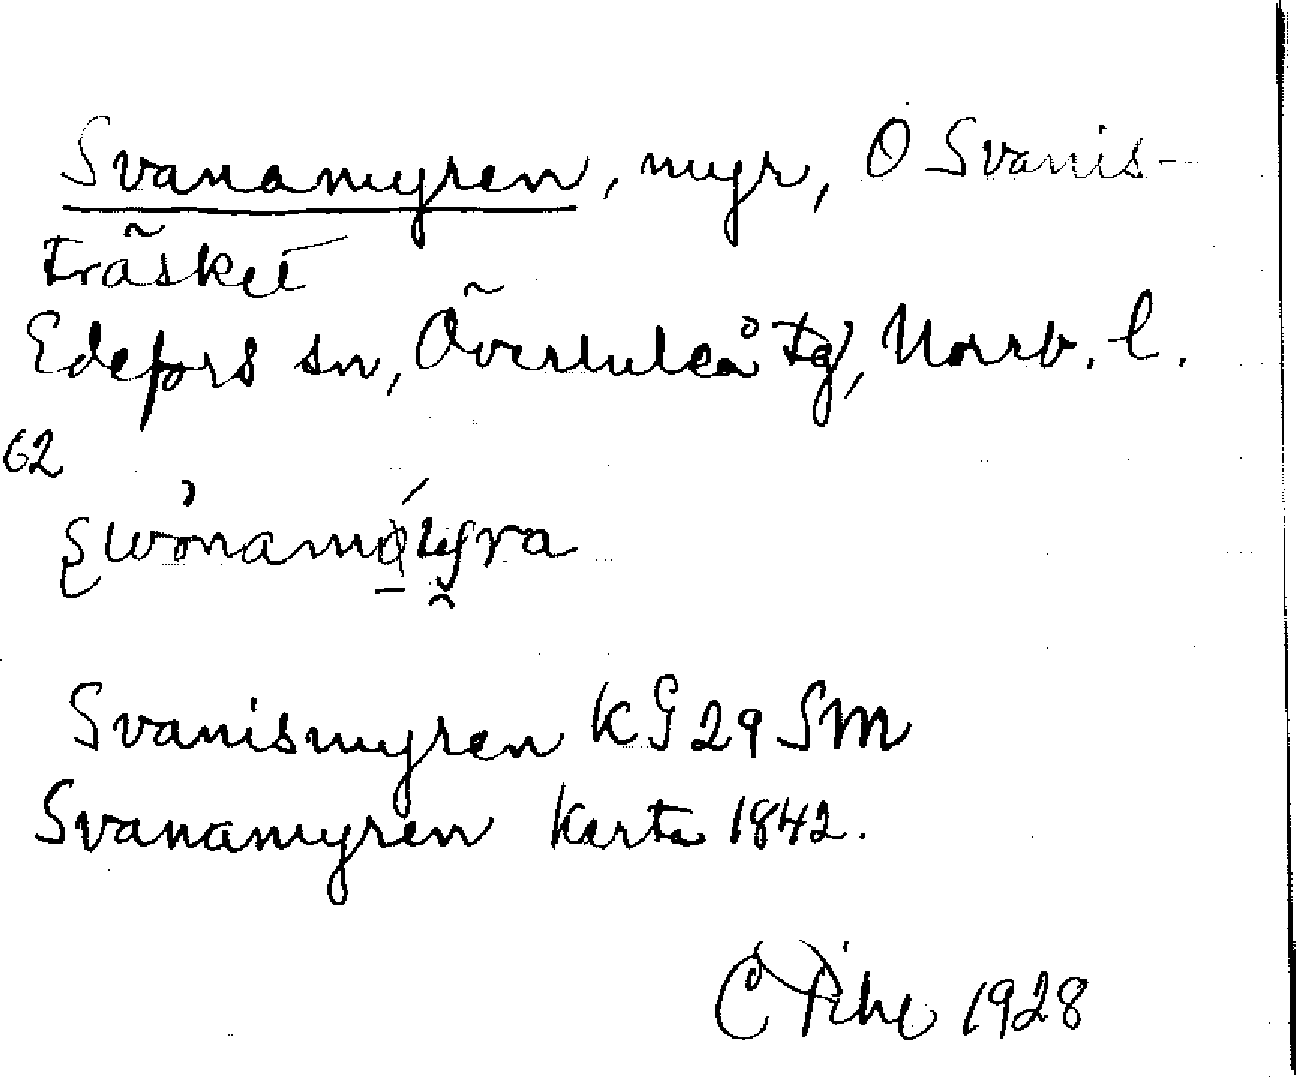 Svanamyren, myr, O Svanis-
träsket
Edefors sn, Överluleå tg, Norrb. l.
62
Svanismyren KG 29 SM
Svanamyren Karta 1842.
C Pihl 1928